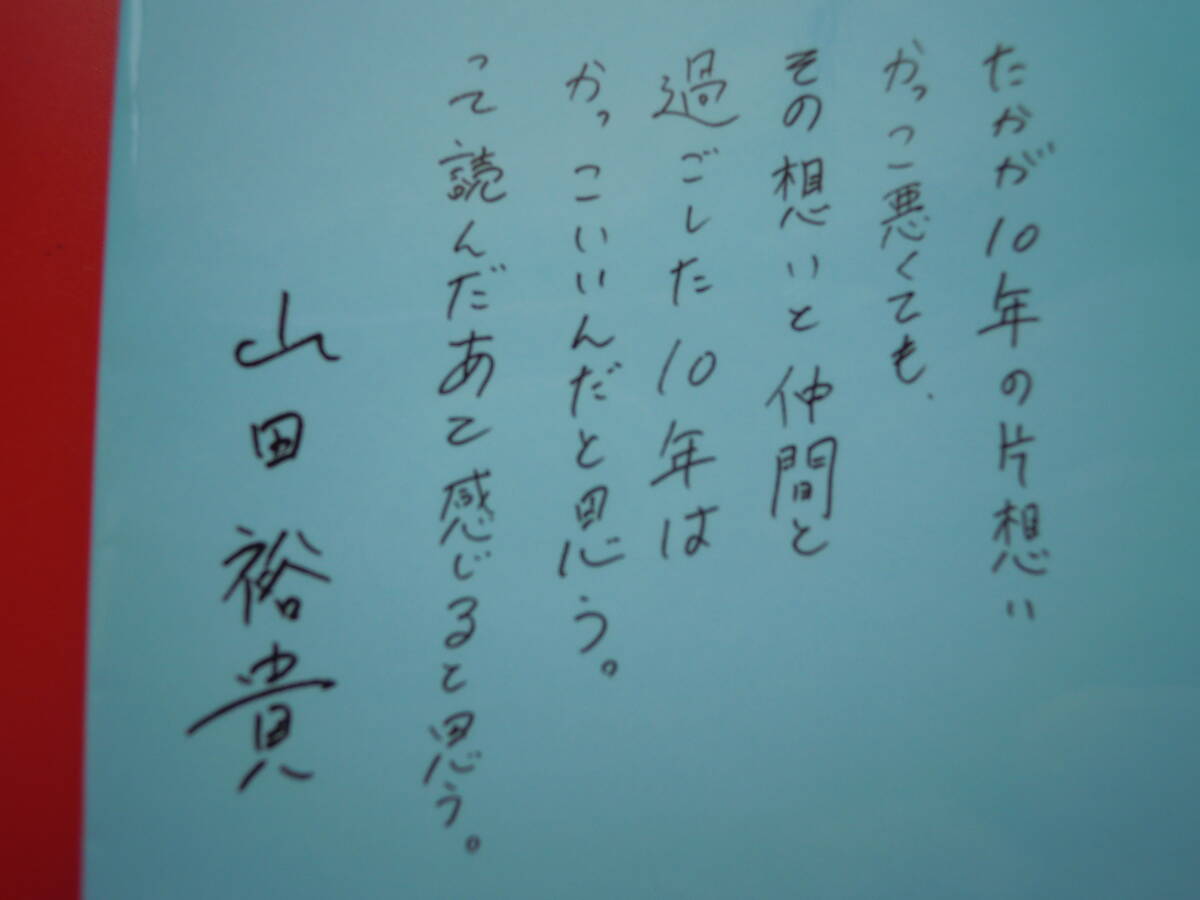 たかが10年の片想い
かっこ悪くても、
その想いと仲間と
過ごした10年は
かっこいいんだと思う。
って読んだあと感じると思う。
山田裕貴